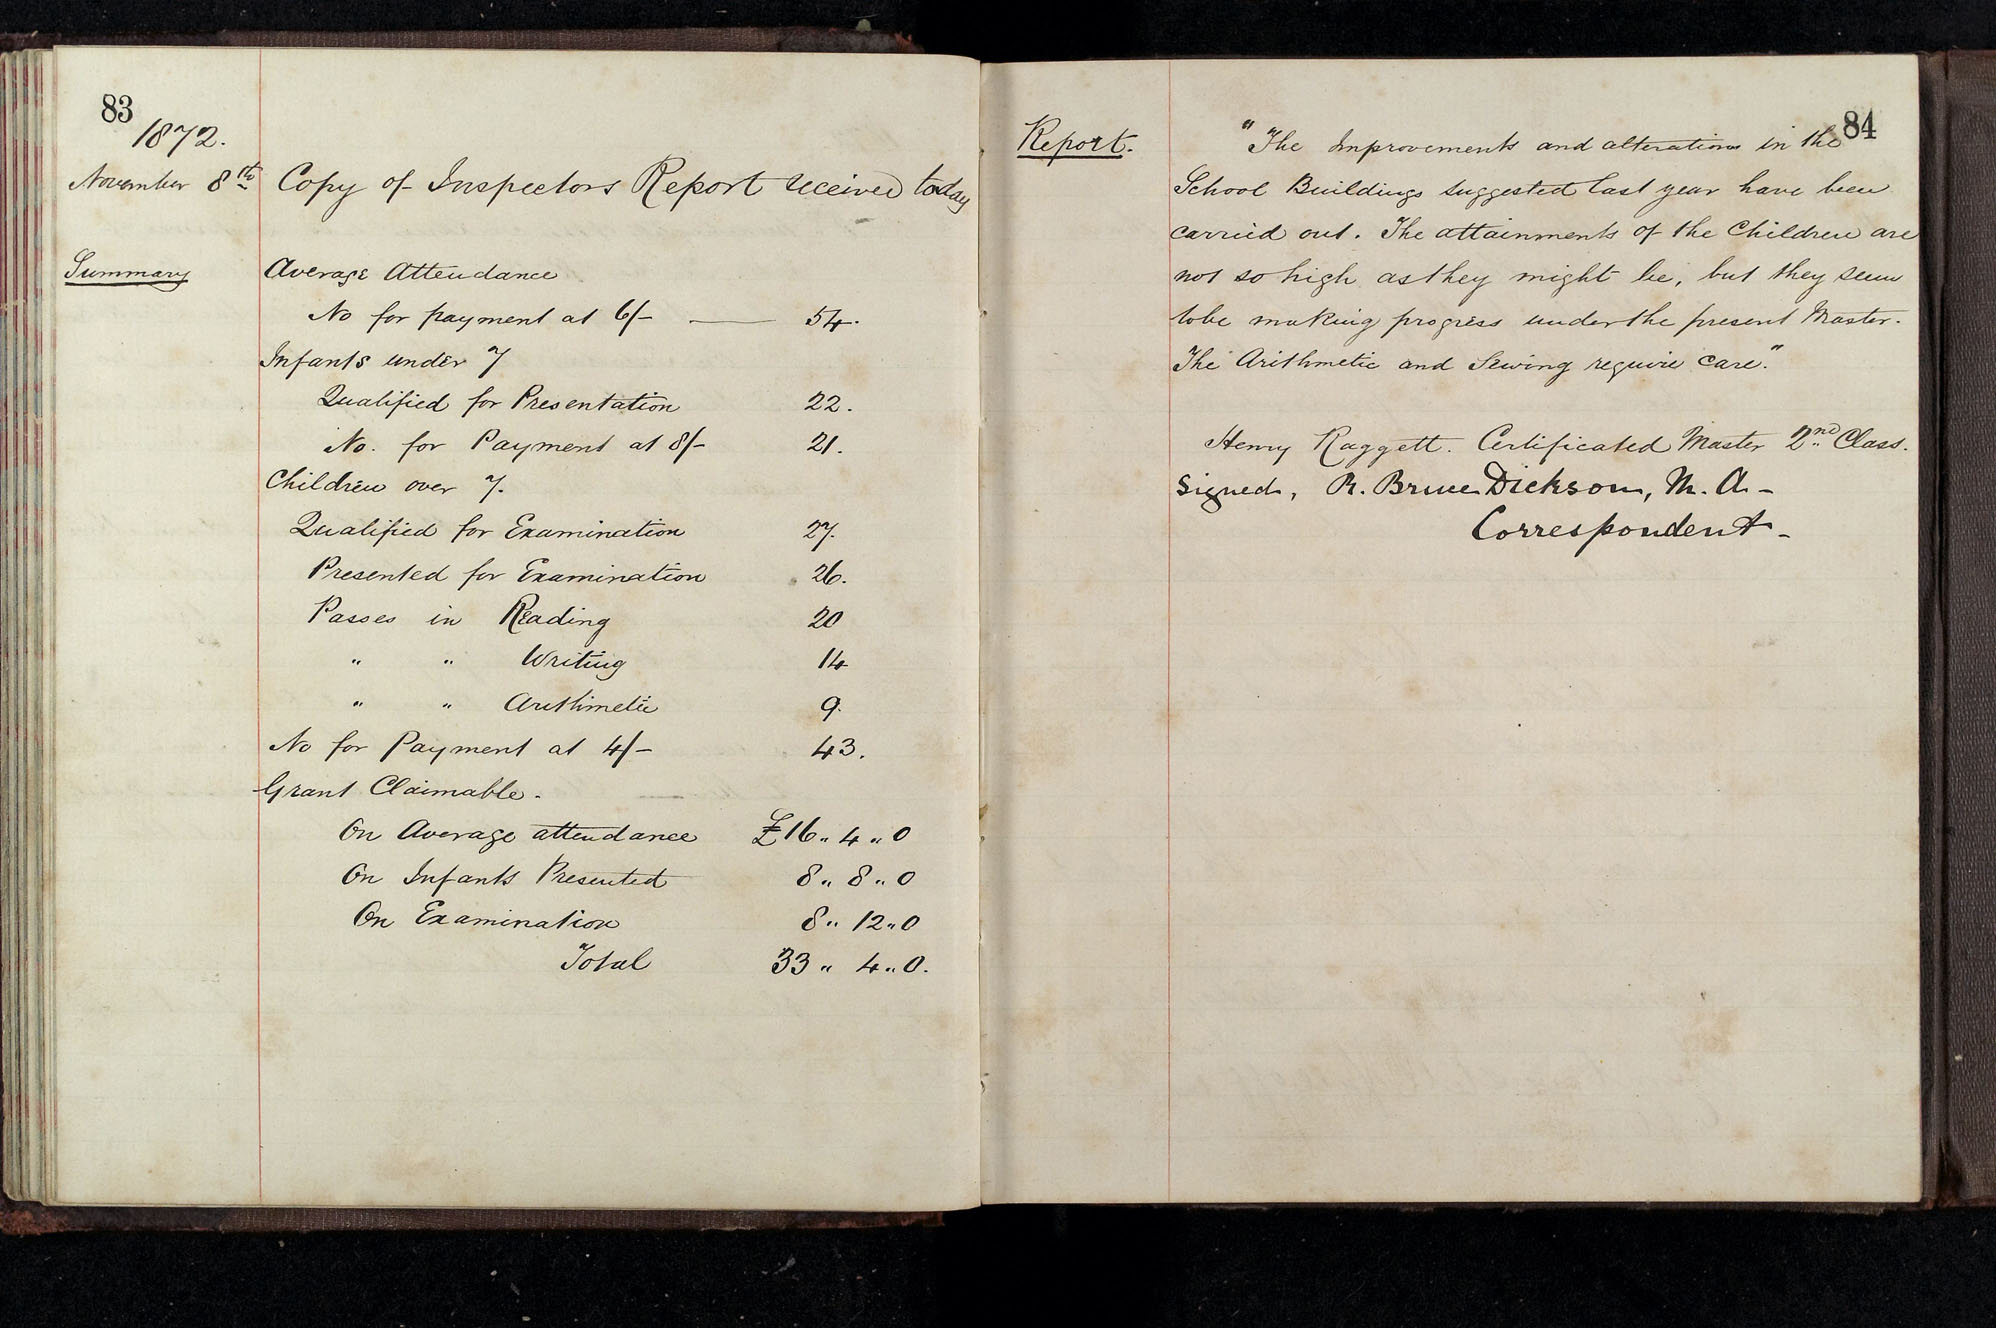 83
1872.
November 8th Copy of Inspectors Report received today
Summary Average Attendance
No for payment at 6/- — 54.
Infants under 7
Qualified for Presentation 22.
No. for Payment at 8/- 21.
Children over 7.
Qualified for Examination 27.
Presented for Examination 26.
Passes in Reading 20
" " Writing 14
" " Arithmetic 9.
No for Payment at 4/- 43.
Grant Claimable.
On Average attendance £16 " 4 " 0
On Infants Presented 8 " 8 " 0
On Examination 8 " 12 " 0
Total 33 " 4 " 0.
84
Report. "The Improvements and alterations in the
School Buildings suggested last year have been
carried out. The attainments of the Children are
not so high as they might be, but they seem
to be making progress under the present Master.
The Arithmetic and Sewing require care."
Henry Raggett. Certificated Master 2nd Class.
Signed, R. Bruce Dickson, M. A-
Correspondent-